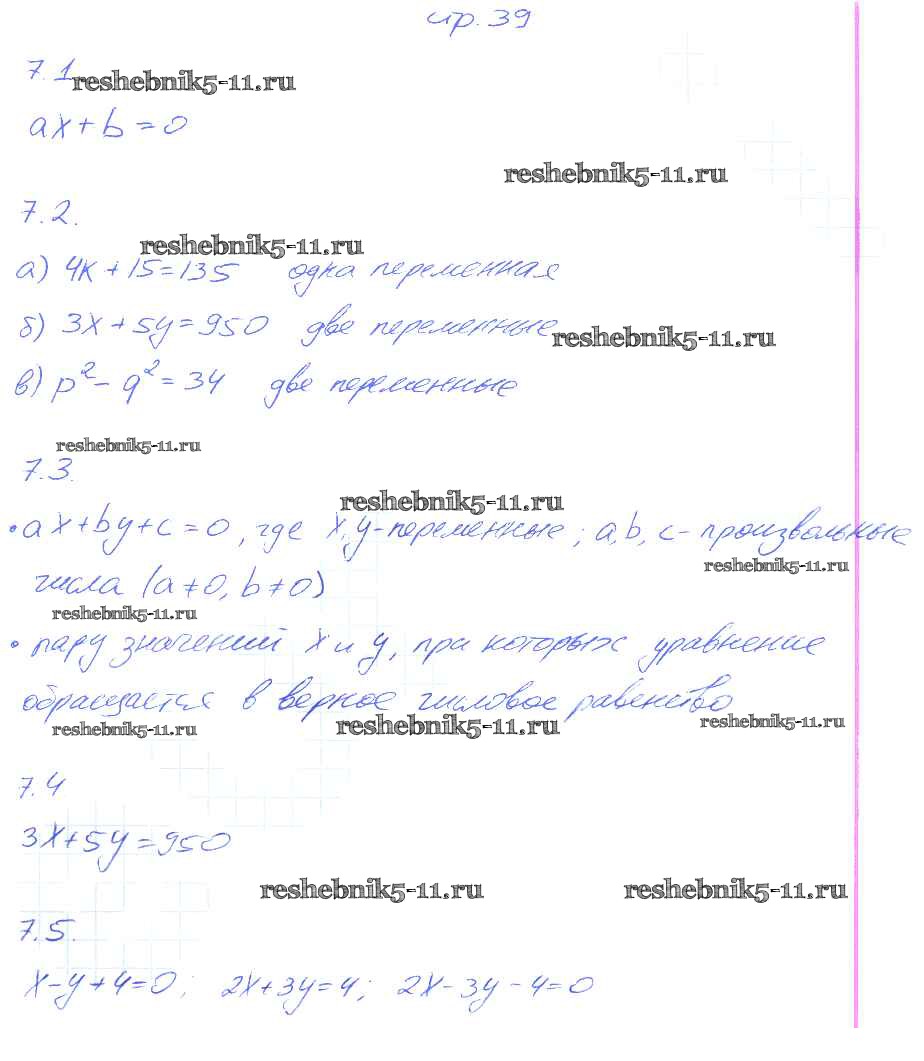 стр. 39
7.1
reshebnik5-11.ru
ax + b = 0
reshebnik5-11.ru
7.2.
reshebnik5-11.ru
а) 4к + 15 = 135 одна переменная
б) 3x + 5y = 950 две переменные
reshebnik5-11.ru
в) p² - q² = 34 две переменные
reshebnik5-11.ru
7.3.
reshebnik5-11.ru
• ax + by + c = 0, где x, y - переменные; a, b, c - произвольные
reshebnik5-11.ru
числа (a ≠ 0, b ≠ 0)
reshebnik5-11.ru
• пару значений x и y, при которых уравнение
обращается в верное числовое равенство
reshebnik5-11.ru reshebnik5-11.ru reshebnik5-11.ru
7.4
3x + 5y = 950
reshebnik5-11.ru reshebnik5-11.ru
7.5.
x - y + 4 = 0; 2x + 3y = 4; 2x - 3y - 4 = 0